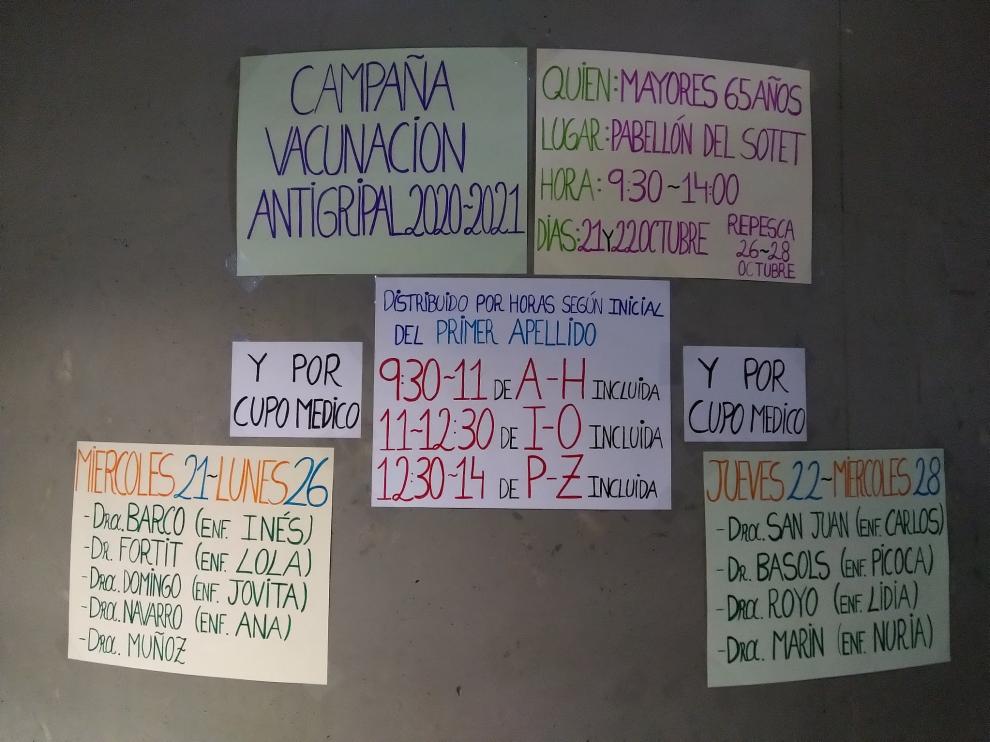 CAMPAÑA
VACUNACION
ANTIGRIPAL 2020~2021
QUIEN: MAYORES 65 AÑOS
LUGAR: PABELLÓN DEL SOTET
HORA: 9:30~14:00
DÍAS: 21 Y 22 OCTUBRE
REPESCA
26~28
OCTUBRE
DISTRIBUIDO POR HORAS SEGÚN INICIAL
DEL PRIMER APELLIDO
9:30-11 DE A-H INCLUIDA
11-12:30 DE I-O INCLUIDA
12:30-14 DE P-Z INCLUIDA
Y POR
CUPO MEDICO
Y POR
CUPO MEDICO
MIERCOLES 21~LUNES 26
-Dra. BARCO (ENF. INÉS)
-DR. FORTIT (ENF. LOLA)
-Dra. DOMINGO (ENF. JOVITA)
-Dra. NAVARRO (ENF. ANA)
-Dra. MUÑOZ
JUEVES 22~MIERCOLES 28
-Dra. SAN JUAN (ENF. CARLOS)
-DR. BASOLS (ENF. PICOCA)
-Dra. ROYO (ENF. LIDIA)
-Dra. MARIN (ENF. NURIA)